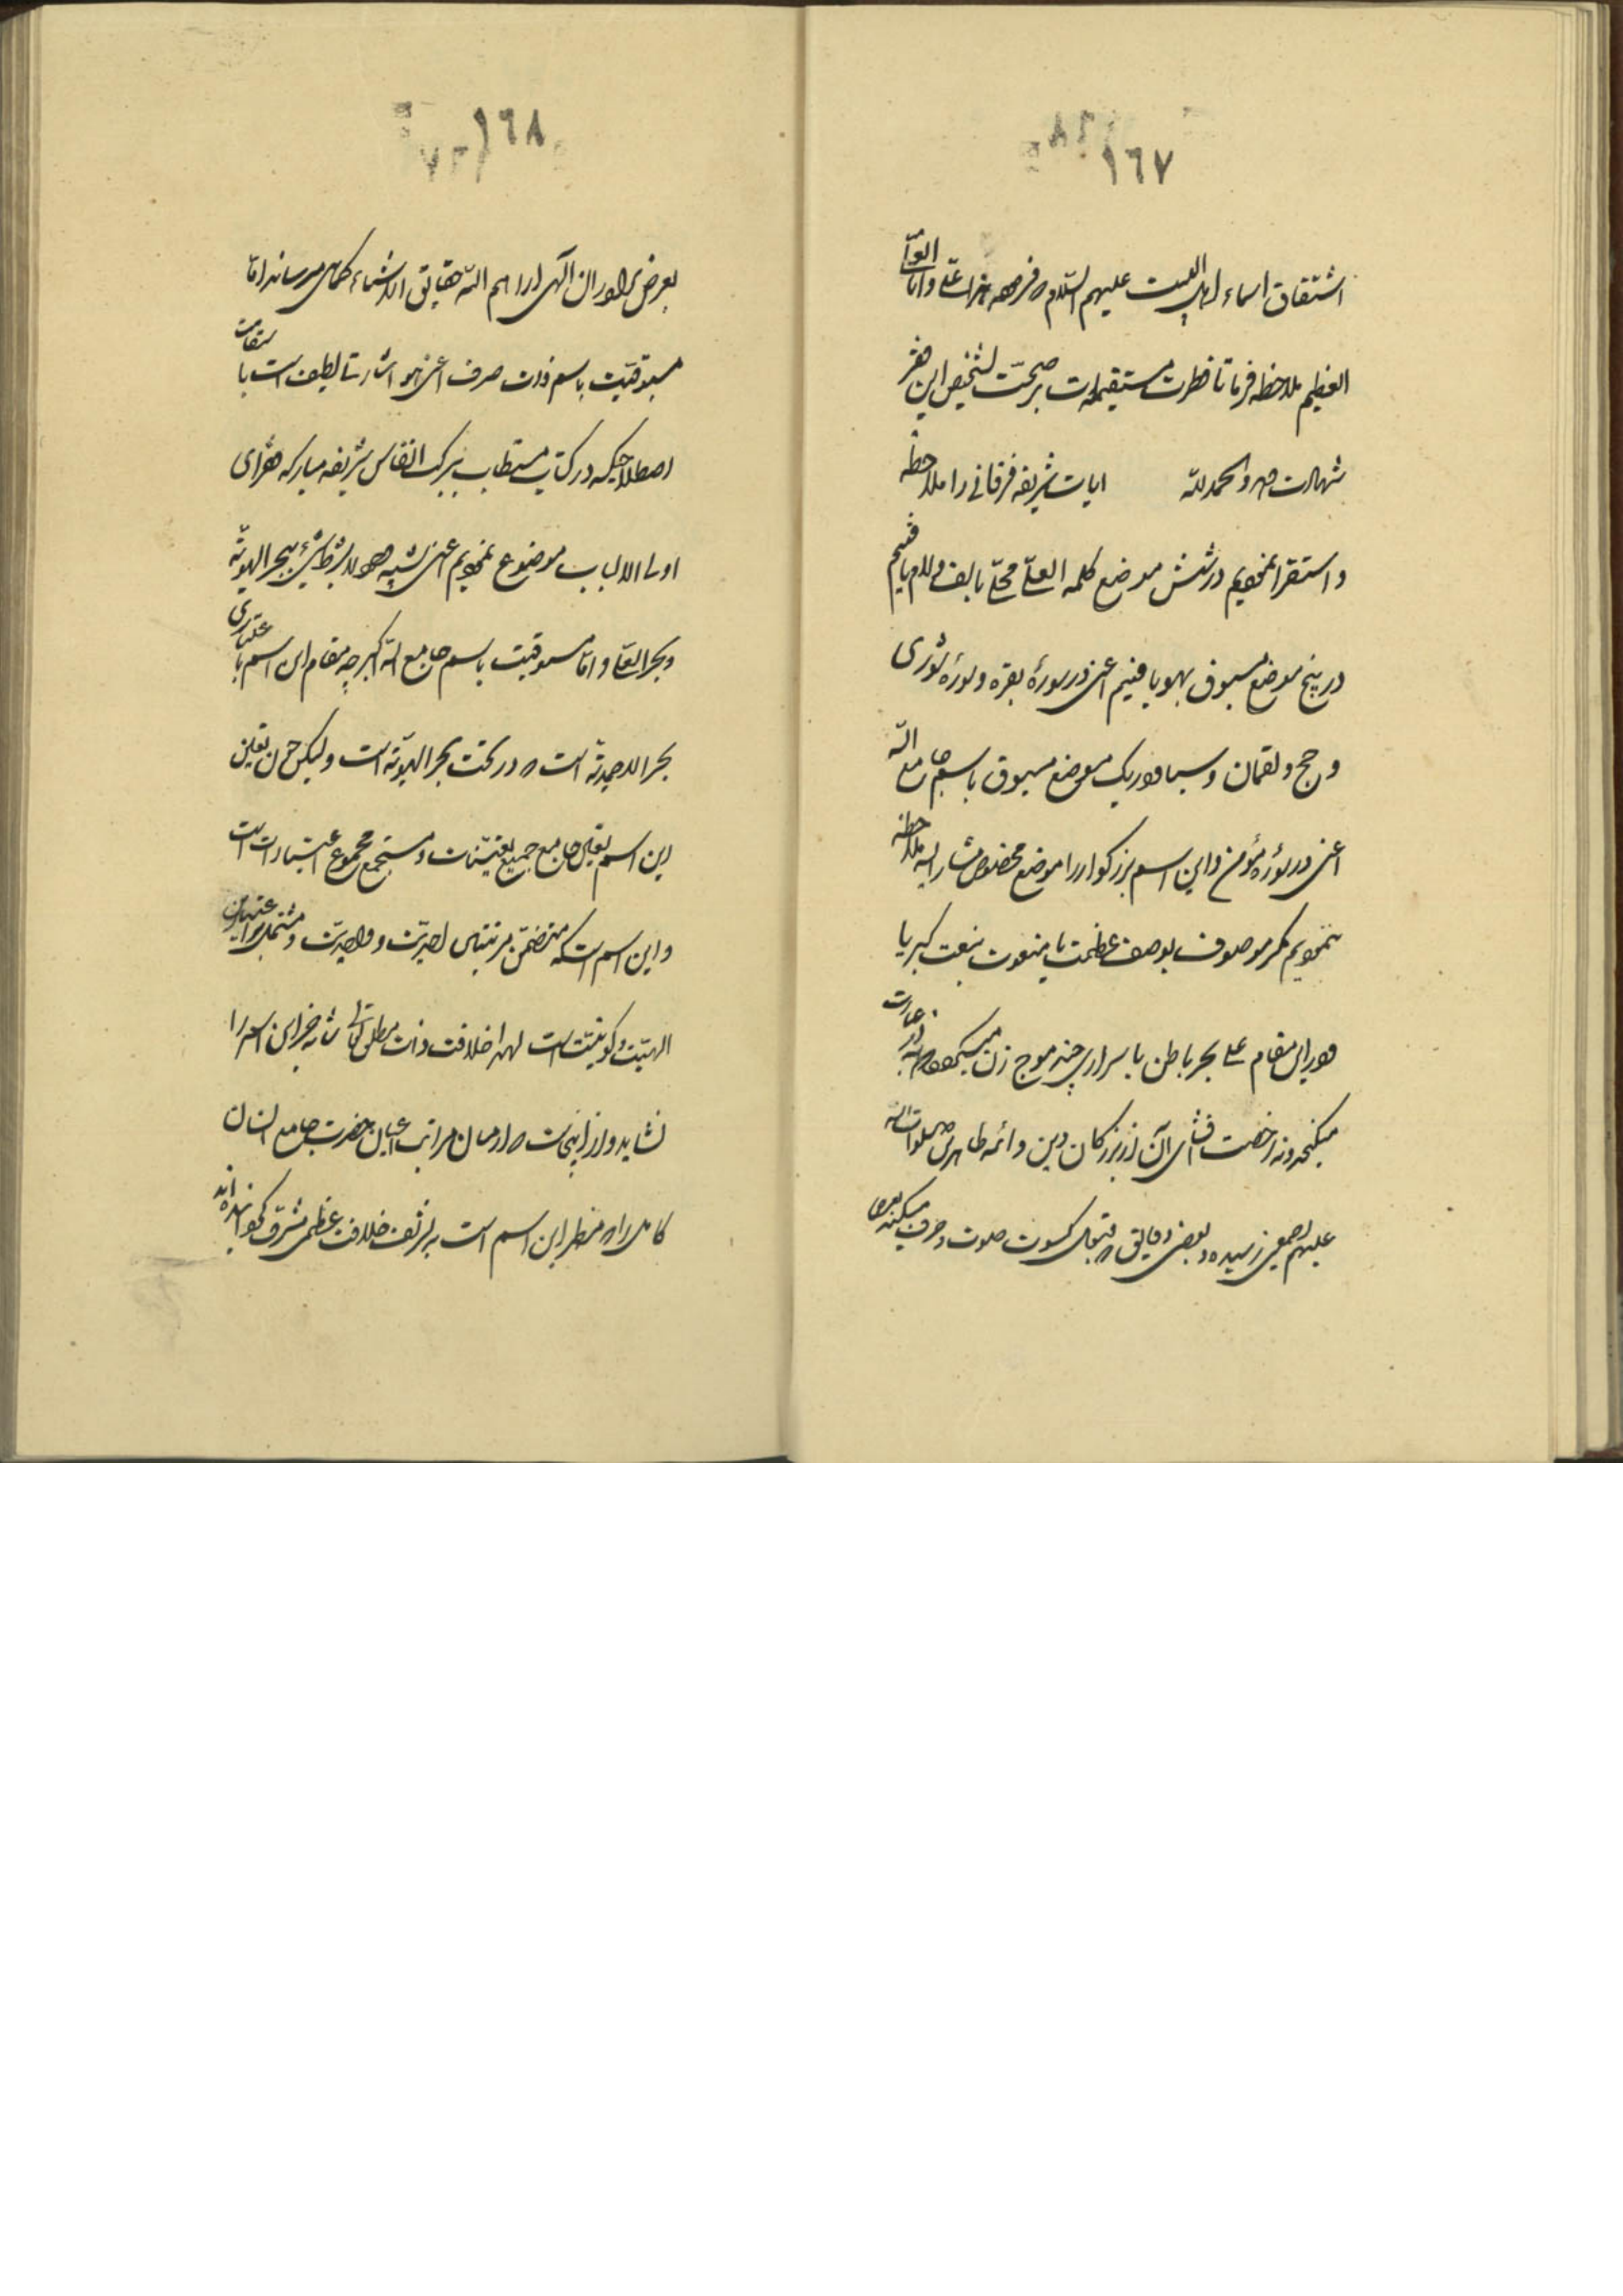 ١٦٧
اشتقاق اسماء اهل البیت علیهم السلام که فرموده هذا علی وانا العلی
العظیم ملاحظه فرما تا فطرت مستقیمه‌ات بر صحت تشخیص این فقیر
شهادت دهد والحمد لله ایات شریفه فرقانی را ملاحظه
و استقرا نمودیم در شش موضع کلمه العلی محلی بالف و لام یافتیم
در پنج موضع مسبوق بهو یافتیم اعنی در سورهٔ بقره و سورهٔ شوری
و حج و لقمان و سبا و در یک موضع مسبوق باسم جامع الله
اعنی در سورهٔ مؤمن و این اسم بزرگوار را موضع مخصوص مشار الیه ملاحظه
ننمودیم مگر موصوف بوصف عظمت یا منعوت بنعت کبریا
و در این مقام علی بحر باطن باسراری چند موج زن میگردد که نه در عبارت
میگنجد و نه رخصت افشای آن از بزرگان دین و ائمه طاهرین صلوات الله
علیهم اجمعین رسیده و بعضی دقایق که متحمل کسوت صوت و حرف میگردد
١٦٨
بعرض برادران الهی ارا هم الله حقایق الاشیاء کماهی میرساند اما
مسبوقیت باسم ذات صرف اعنی هو اشارتی لطیف است با
اصطلاحیکه در کتاب مستطاب ببرکت انفاس شریفه مبارکه فقرای
اولی الالباب موضوع نمودیم اعنی تشبیه وجود لا بشرط شیء ببحر الهویة
و بحر العلی و اما مسبوقیت باسم جامع الله اگر چه مقام این اسم با
بحر الاحدیة است که در تحت بحر الهویة است ولیکن چون تعین
این اسم تعین جامع جمیع تعینات و مستجمع مجموع اعتبارات است
و این اسم است که متضمن مرتبتین احدیت و واحدیت و مشتمل بر
الهیت و کونیت است لهذا خلافت ذات مطلق را جز این اسم را
نشاید و از اینجاست که از میان مراتب اعیان حضرت جامع انسان
کامل را که مظهر این اسم است بشرف خلافت عظمی مشرف گردانیده اند